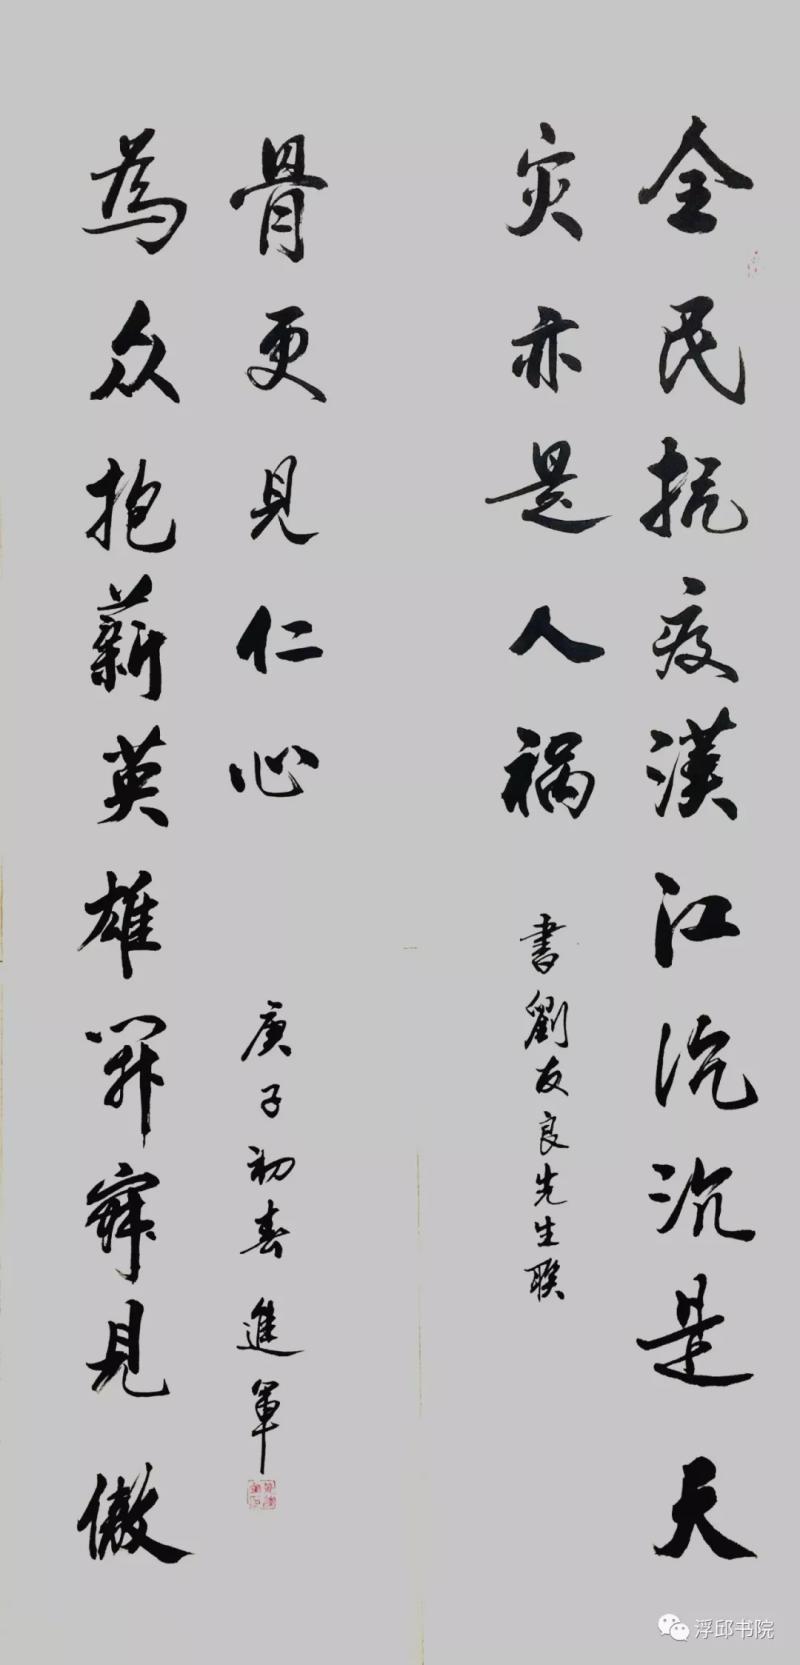 全民抗疫漢江沉沉是天
灾亦是人祸
書劉友良先生联
為众抱薪英雄見傲
骨更見仁心
庚子初春進軍
浮邱书院